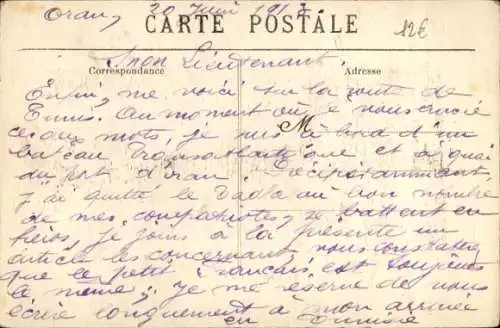 Oran, 20 Juin 1917
CARTE POSTALE
12€
Mon Lieutenant.
Correspondance
Adresse
Enfin, me voici sur la route de
Tunis. Au moment où je vous écris
ces deux mots, je suis à bord d'un
M
bateau Transatlantique et à quai
du port d'Oran.
j'ai quitté le Dadla où bon nombre
de mes compatriotes, se battent en
héros, je joins à la présente un
article les concernant, vous constaterez
que le petit Français est toujours
le même; Je me réserve de vous
écrire longuement à mon arrivée
en Tunisie